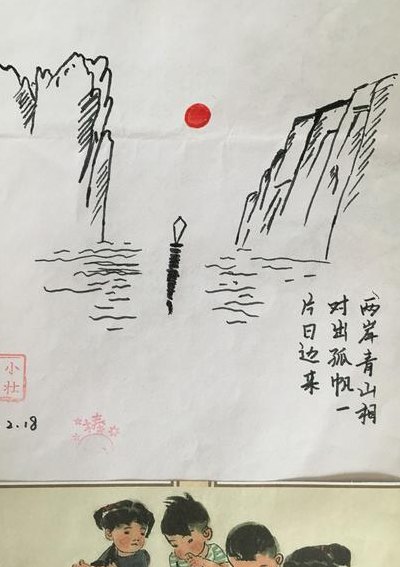 两岸青山相
对出孤帆一
片日边来
小
壮
2.18